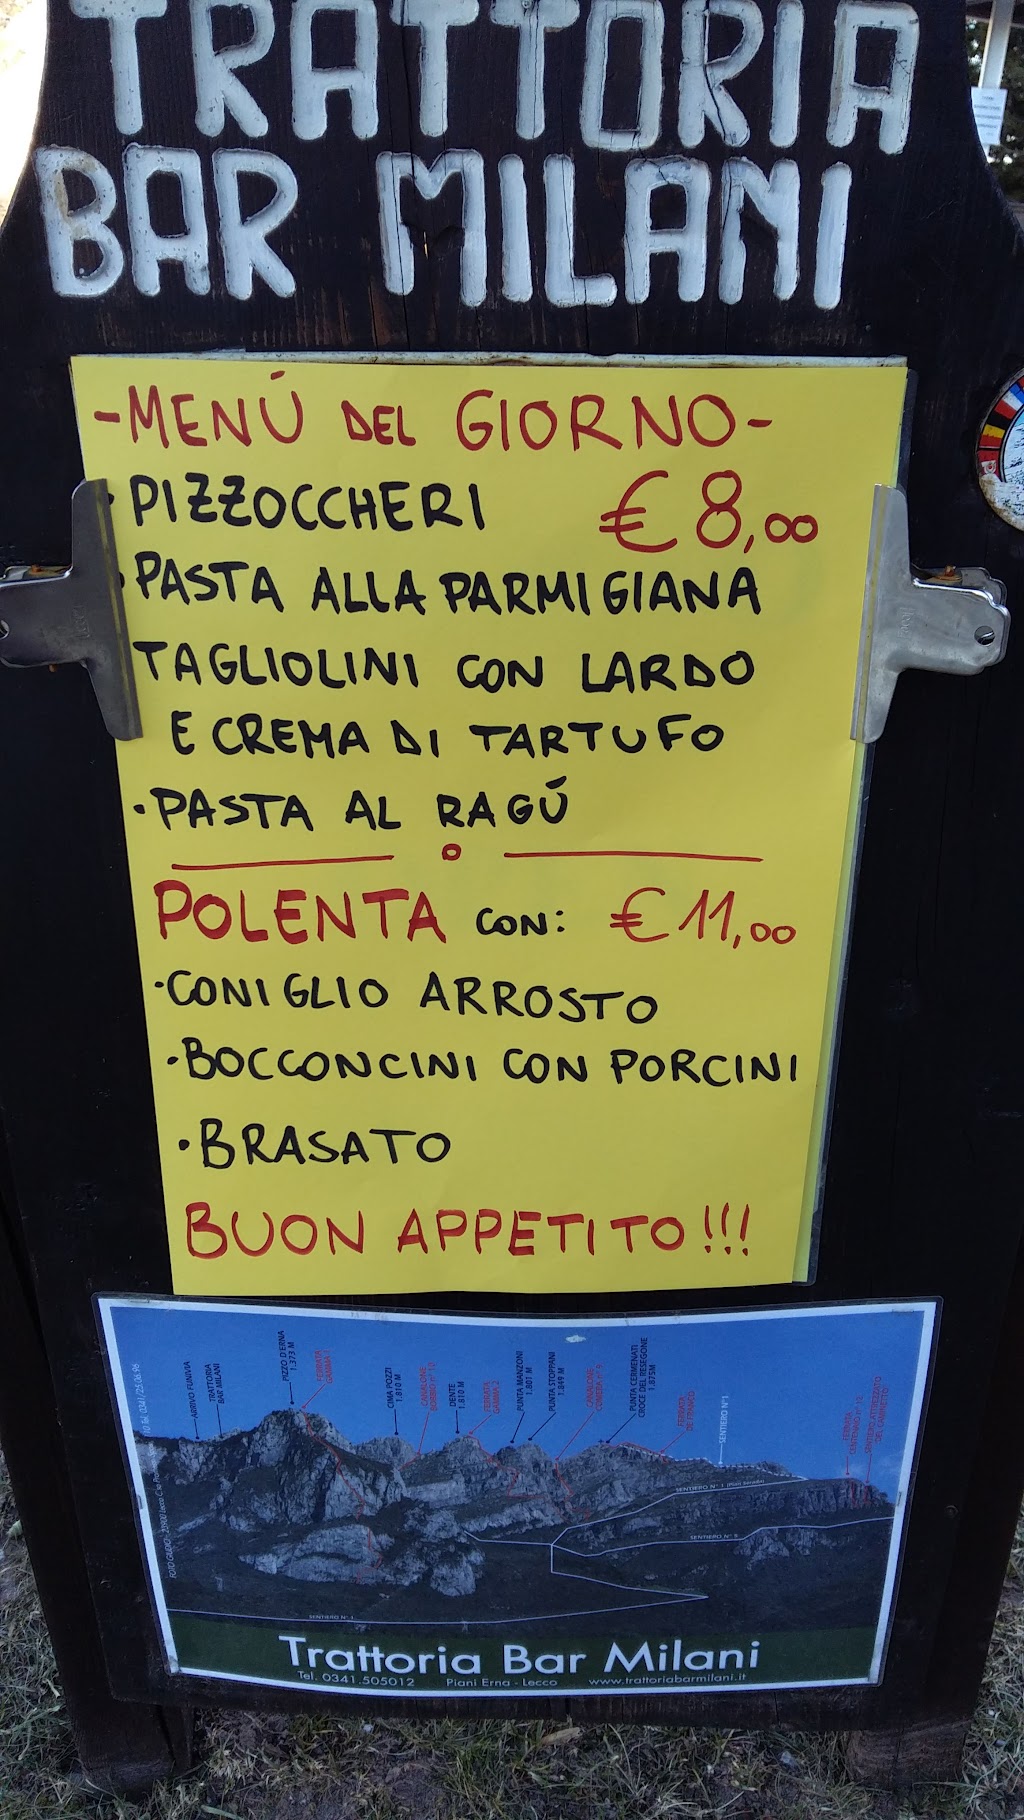 TRATTORIA
BAR MILANI
-MENÚ DEL GIORNO-
·PIZZOCCHERI € 8,00
·PASTA ALLA PARMIGIANA
TAGLIOLINI CON LARDO
E CREMA DI TARTUFO
·PASTA AL RAGÚ
POLENTA CON: € 11,00
·CONIGLIO ARROSTO
·BOCCONCINI CON PORCINI
·BRASATO
BUON APPETITO!!!
ARRIVO FUNIVIA
TRATTORIA
BAR MILANI
PIZZO D'ERNA
1.373 M
FERRATA
GAMMA 1
CIMA POZZI
1.810 M
DENTE
1.810 M
FERRATA
GAMMA 2
PUNTA MANZONI
1.801 M
PUNTA STOPPANI
1.849 M
PUNTA CERMENATI
CROCE DEL RESEGONE
1.875M
SENTIERO N°1
SENTIERO N° 1
SENTIERO N° 5
SENTIERO N° 1
Trattoria Bar Milani
Tel. 0341.505012 Piani Erna - Lecco www.trattoriabarmilani.it